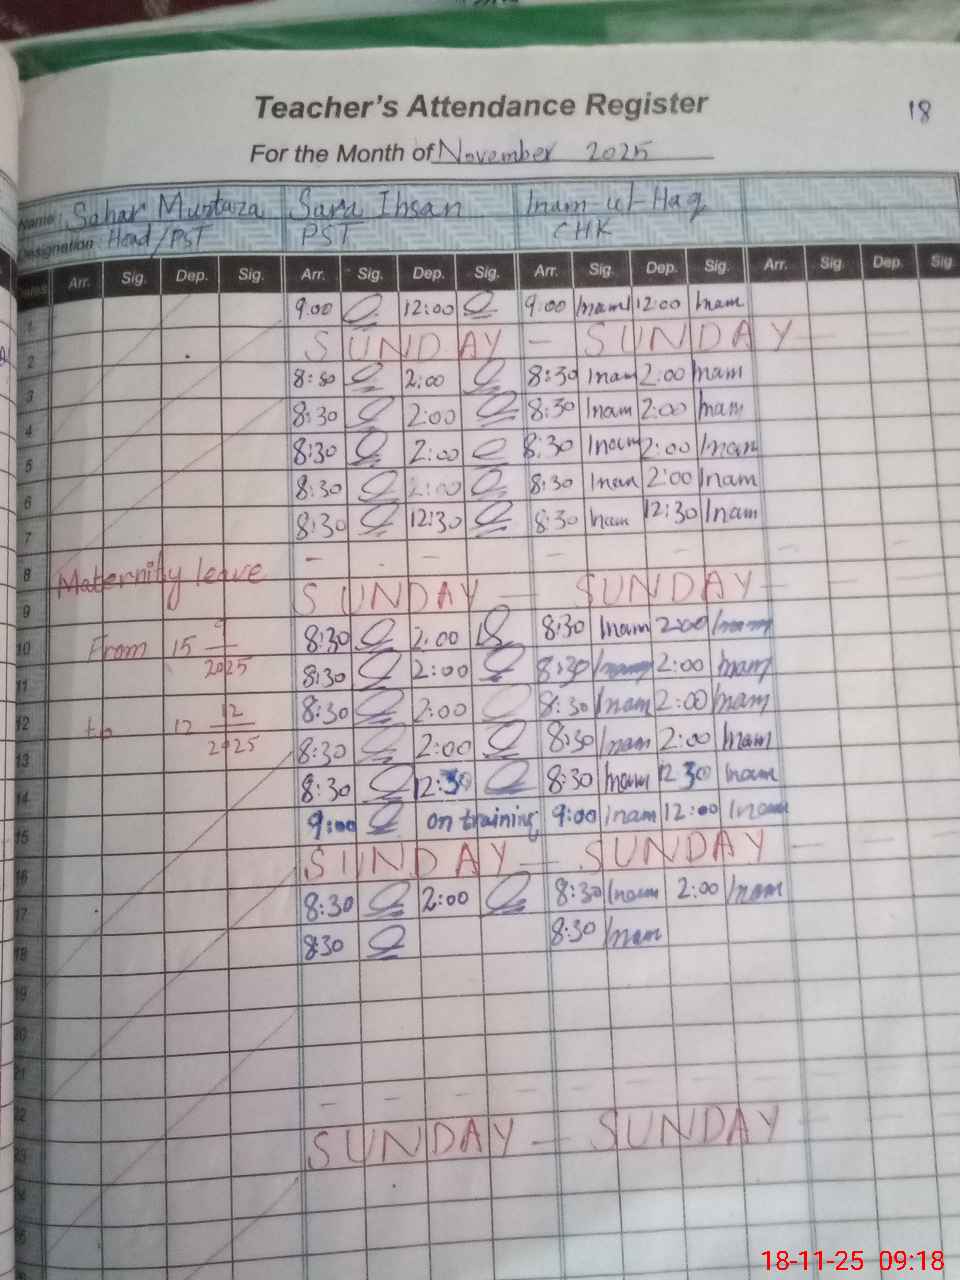 Teacher's Attendance Register
18
For the Month of November 2025
Name: Sahar Murtaza Sara Ihsan Inam-ul-Haq
Designation: Head/PST PST CHK
Arr. Sig. Dep. Sig. Arr. Sig. Dep. Sig. Arr. Sig. Dep. Sig. Arr. Sig. Dep. Sig
1 9:00 12:00 9:00 Inam 12:00 Inam
2 SUNDAY - SUNDAY
3 8:30 2:00 8:30 Inam 2:00 Inam
4 8:30 2:00 8:30 Inam 2:00 Inam
5 8:30 2:00 8:30 Inam 2:00 Inam
6 8:30 2:00 8:30 Inam 2:00 Inam
7 8:30 12:30 8:30 Inam 12:30 Inam
8 Maternity leave - - - -
9 SUNDAY - SUNDAY
10 From 15 9/2025 8:30 2:00 8:30 Inam 2:00 Inam
11 8:30 2:00 8:30 Inam 2:00 Inam
12 to 12 12/2025 8:30 2:00 8:30 Inam 2:00 Inam
13 8:30 2:00 8:30 Inam 2:00 Inam
14 8:30 12:30 8:30 Inam 12 30 Inam
15 9:00 on training 9:00 Inam 12:00 Inam
16 SUNDAY - SUNDAY
17 8:30 2:00 8:30 Inam 2:00 Inam
18 8:30 8:30 Inam
19
20
21
22 - - - -
23 SUNDAY - SUNDAY
24
25
18-11-25 09:18